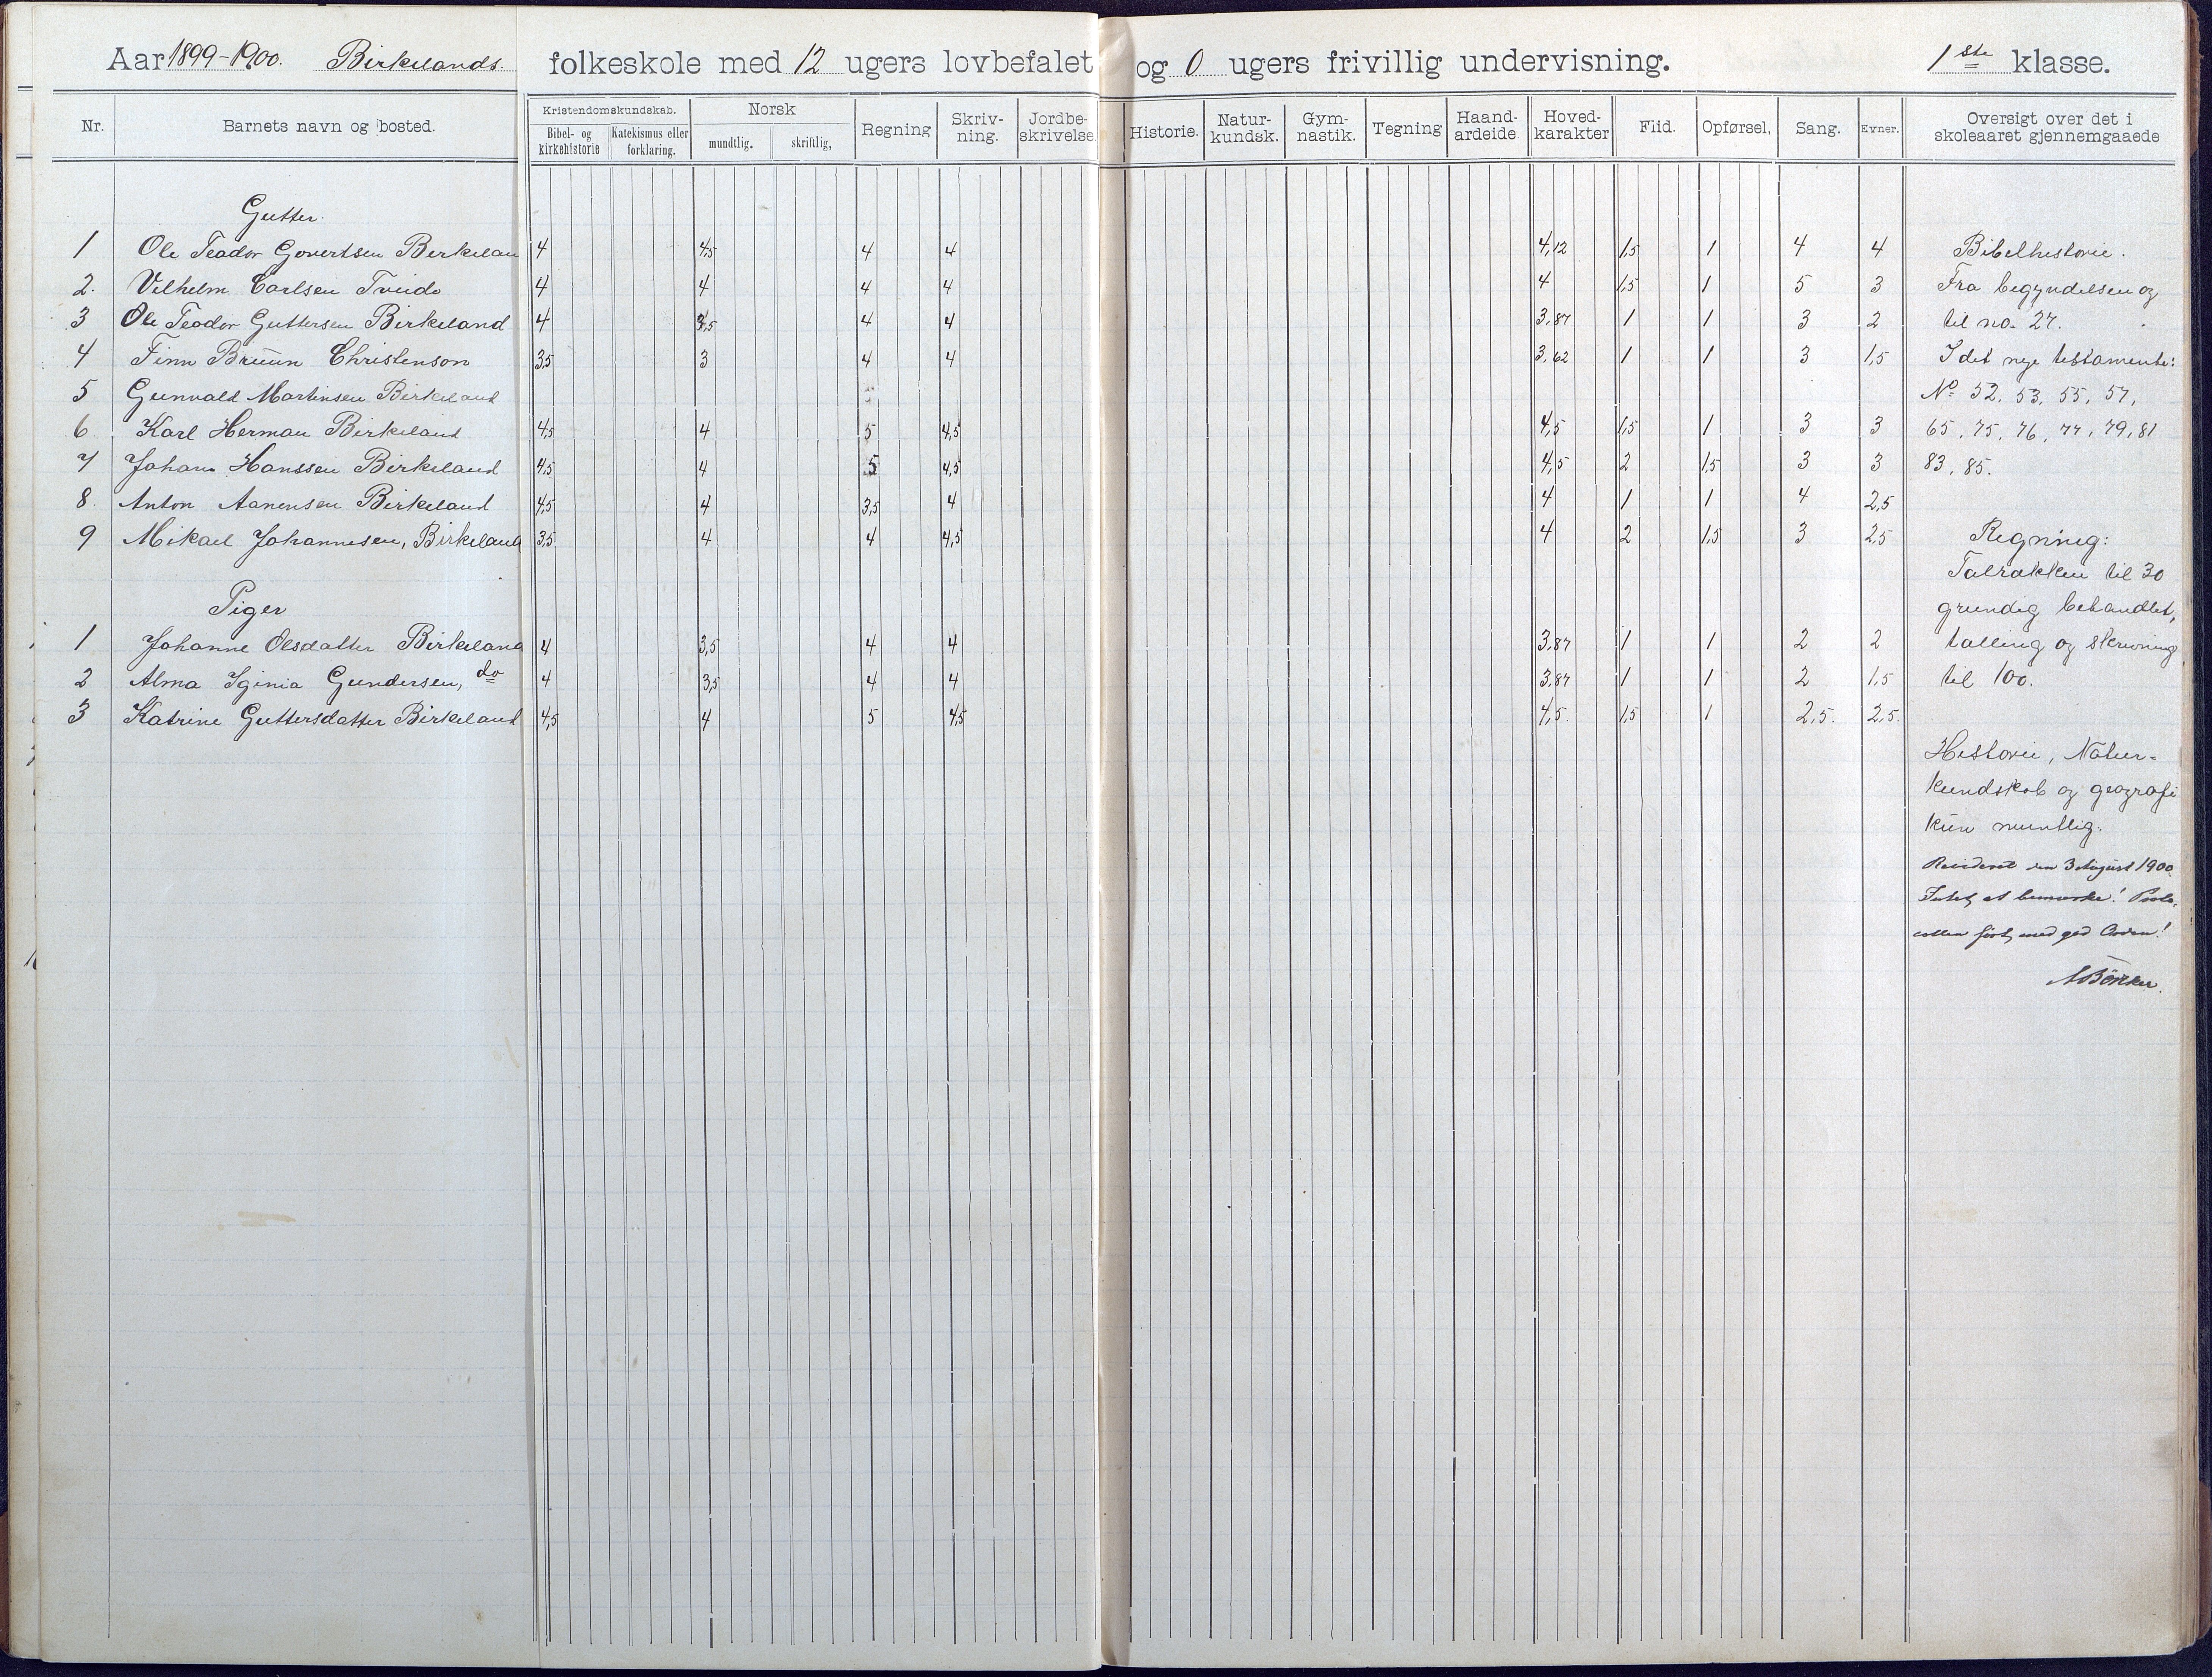 Aar 1899-1900. Birkelands folkeskole med 12 ugers lovbefalet og 0 ugers frivillig undervisning. 1ste klasse.
Nr. Barnets navn og bosted. Kristendomskundskab. Norsk Regning Skriv-ning. Jordbe-skrivelse Historie. Natur-kundsk. Gym-nastik. Tegning Haand-arbeide Hoved-karakter Flid. Opførsel. Sang. Evner. Oversigt over det i skoleaaret gjennemgaaede
Bibel- og kirkehistorie Katekismus eller forklaring. mundtlig. skriftlig,
Gutter.
1 Ole Teador Govertsen Birkelan 4 4,5 4 4 4,12 1,5 1 4 4 Bibelhistorie.
2. Vilhelm Carlsen Tveide 4 4 4 4 4 1,5 1 5 3 Fra begyndelsen og
3 Ole Teodor Guttersen Birkeland 4 3,5 4 4 3,87 1 1 3 2 til no. 27.
4 Finn Bruun Christenson 3,5 3 4 4 3,62 1 1 3 1,5 I det nye testamente:
5 Gunvald Martinsen Birkeland No 52, 53, 55, 57,
6 Karl Herman Birkeland 4,5 4 5 4,5 4,5 1,5 1 3 3 65, 75, 76, 77, 79, 81
7 Johan Hanssen Birkeland 4,5 4 5 4,5 4,5 2 1,5 3 3 83, 85.
8. Anton Aanensen Birkeland 4,5 4 3,5 4 4 1 1 4 2,5
9 Mikael Johannesen, Birkeland 3,5 4 4 4,5 4 2 1,5 3 2,5 Regning:
Talrækken til 30
Piger grundig behandlet,
1 Johanne Olsdatter Birkeland 4 3,5 4 4 3,87 1 1 2 2 tælling og skrivning
2 Alma Iginia Gundersen, do 4 3,5 4 4 3,87 1 1 2 1,5 til 100.
3 Katrine Guttersdatter Birkeland 4,5 4 5 4,5 4,5. 1,5 1 2,5. 2,5.
Historie, Natur=
kundskab og geografi
kun muntlig.
Revideret den 3 August 1900.
Intet at bemærke! Proto-
collen ført med god Orden!